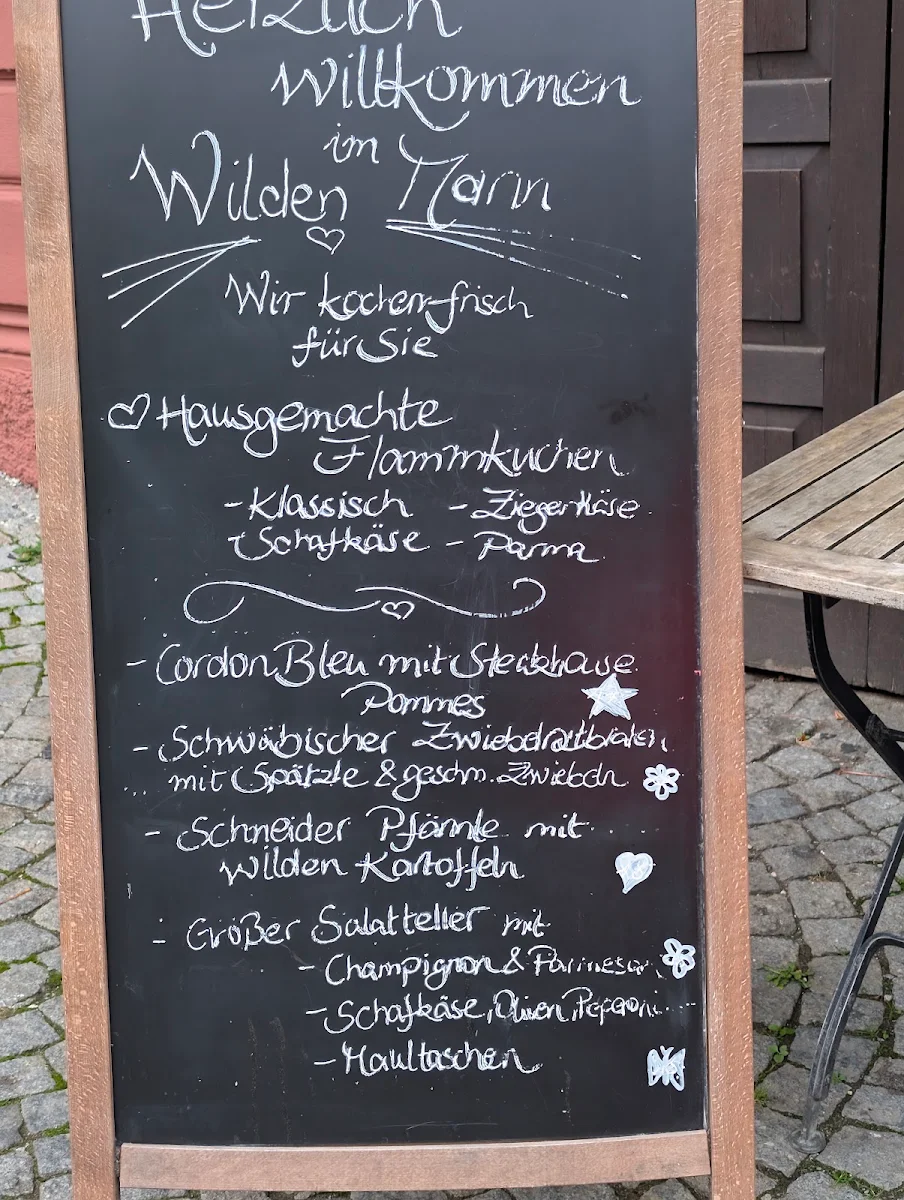 Herzlich
Willkommen
im
Wilden Mann
Wir kochen frisch
für Sie
Hausgemachte
Flammkuchen
- Klassisch - Ziegenkäse
Schafkäse - Parma
- Cordon Bleu mit Steakhouse
Pommes
- Schwäbischer Zwiebelrostbraten
mit Spätzle & geschm. Zwiebeln
- Schneider Pfännle mit
wilden Kartoffeln
- Großer Salatteller mit
- Champignon & Parmesan
- Schafkäse, Oliven, Peperoni
- Maultaschen